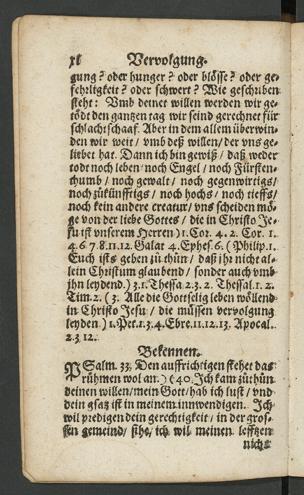 xl Vervolgung.
gung? oder hunger? oder blösse? oder ge-
fehrligkeit? oder schwert? Wie geschriben
steht: Vmb deinet willen werden wir ge-
tödt den gantzen tag wir seind gerechnet für
schlachtschaaf. Aber in dem allem überwin-
den wir weit / vmb deß willen / der vns ge-
liebet hat. Dann ich bin gewiß / daß weder
todt noch leben / noch Engel / noch Fürsten-
thumb / noch gewalt / noch gegenwirtigs /
noch zůkünfftigs / noch hochs / noch tieffs /
noch kein andere creatur / vns scheiden mö-
ge von der liebe Gottes / die in Christo Je-
su ist vnserem Herren) 1. Cor. 4. 2. Cor. 1.
4. 6. 7. 8. 11. 12. Galat 4. Ephes. 6. (Philip. 1.
Euch ists geben zů thůn / daß jhr nicht al-
lein Christum glaubend / sonder auch vmb
jhn leydend.) 3. 1. Thessa. 2. 3. 2. Thessal. 1. 2.
Tim. 2. (3. Alle die Gottselig leben wöllend
in Christo Jesu / die müssen vervolgung
leyden) 1. Pet. 1. 3. 4. Ebre. 11. 12. 13. Apocal.
2. 3. 12.
Bekennen.
PSalm. 33. Den auffrichtigen stehet das
rühmen wol an.) (40. Ich kam zůthůn
deinen willen / mein Gott / hab ich lust / vnd
dein gsatz ist in meinem innwendigen. Ich
wil predigen dein gerechtigkeit / in der gros-
sen gemeind / sihe / ich wil meinen lefftzen
nicht